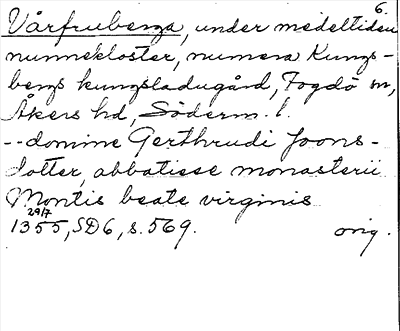 6.
Vårfruberga, under medeltiden
nunnekloster, numera Kungs-
bergs kungsladugård, Fogdö sn,
Åkers hd, Söderm. l.
--domine Gerthrudi Joons-
dotter, abbatisse monasterii
Montis beate virginis
29/7
1355, SD6, s. 569. orig.